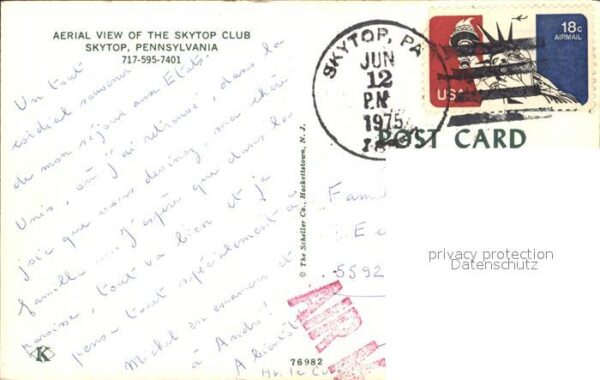 AERIAL VIEW OF THE SKYTOP CLUB
SKYTOP, PENNSYLVANIA
717-595-7401
Un tout
cordial souvenir
de mon séjour aux Etats-
Unis, où j'ai retrouvé, dans la
joie que vous devinez, ma chère
famille ... J'espère que dans la
vôtre, tout va bien et je
pense tout spécialement à
Michel en examens et
à André!
A bientôt
K
76982
© The Scheller Co., Hackettstown, N. J.
SKYTOP, PA
JUN
12
PM
1975
18c
AIRMAIL
USA
POST CARD
Fami
5592
privacy protection
Datenschutz